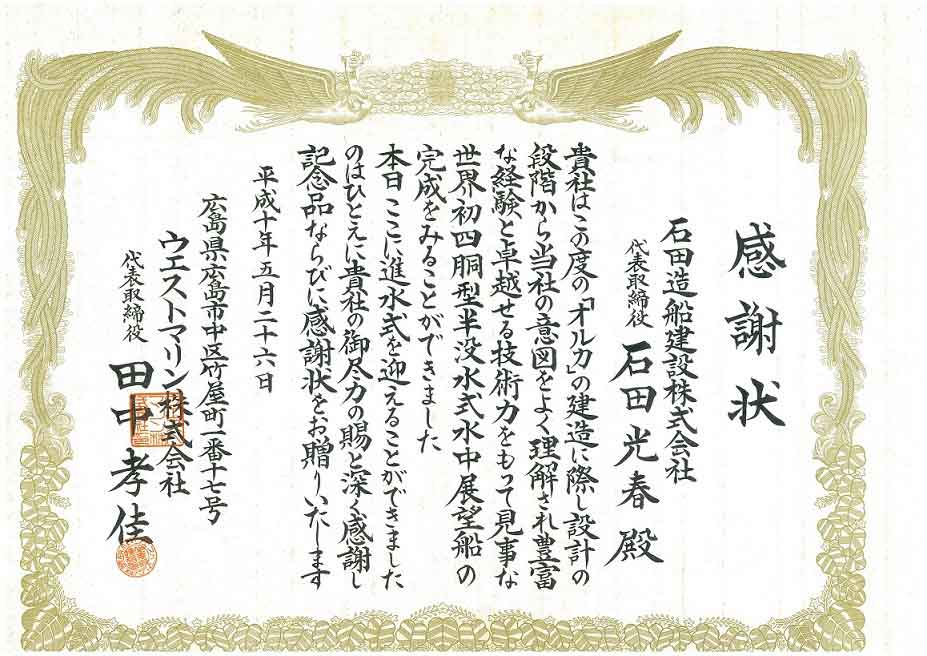 感謝状
石田造船建設株式会社
代表取締役 石田光春殿
貴社はこの度の「オルカ」の建造に際し設計の
段階から当社の意図をよく理解され豊富
な経験と卓越せる技術力をもって見事な
世界初四胴型半没水式水中展望船の
完成をみることができました
本日ここに進水式を迎えることができました
のはひとえに貴社の御尽力の賜と深く感謝し
記念品ならびに感謝状をお贈りいたします
平成十年五月二十六日
広島県広島市中区竹屋町一番十七号
ウエストマリン株式会社
代表取締役 田中孝佳